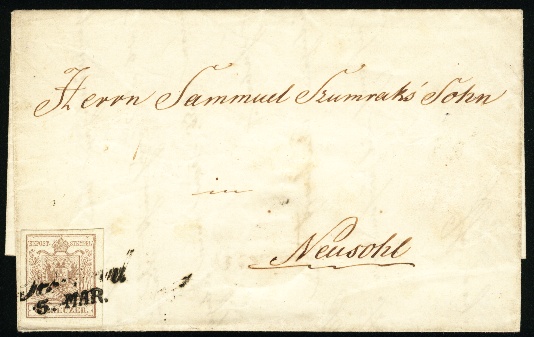 Herrn Sammuel Szumrak's Sohn
in
Neusohl
KK POST-STEMPEL
5. MAR.
KREUZER